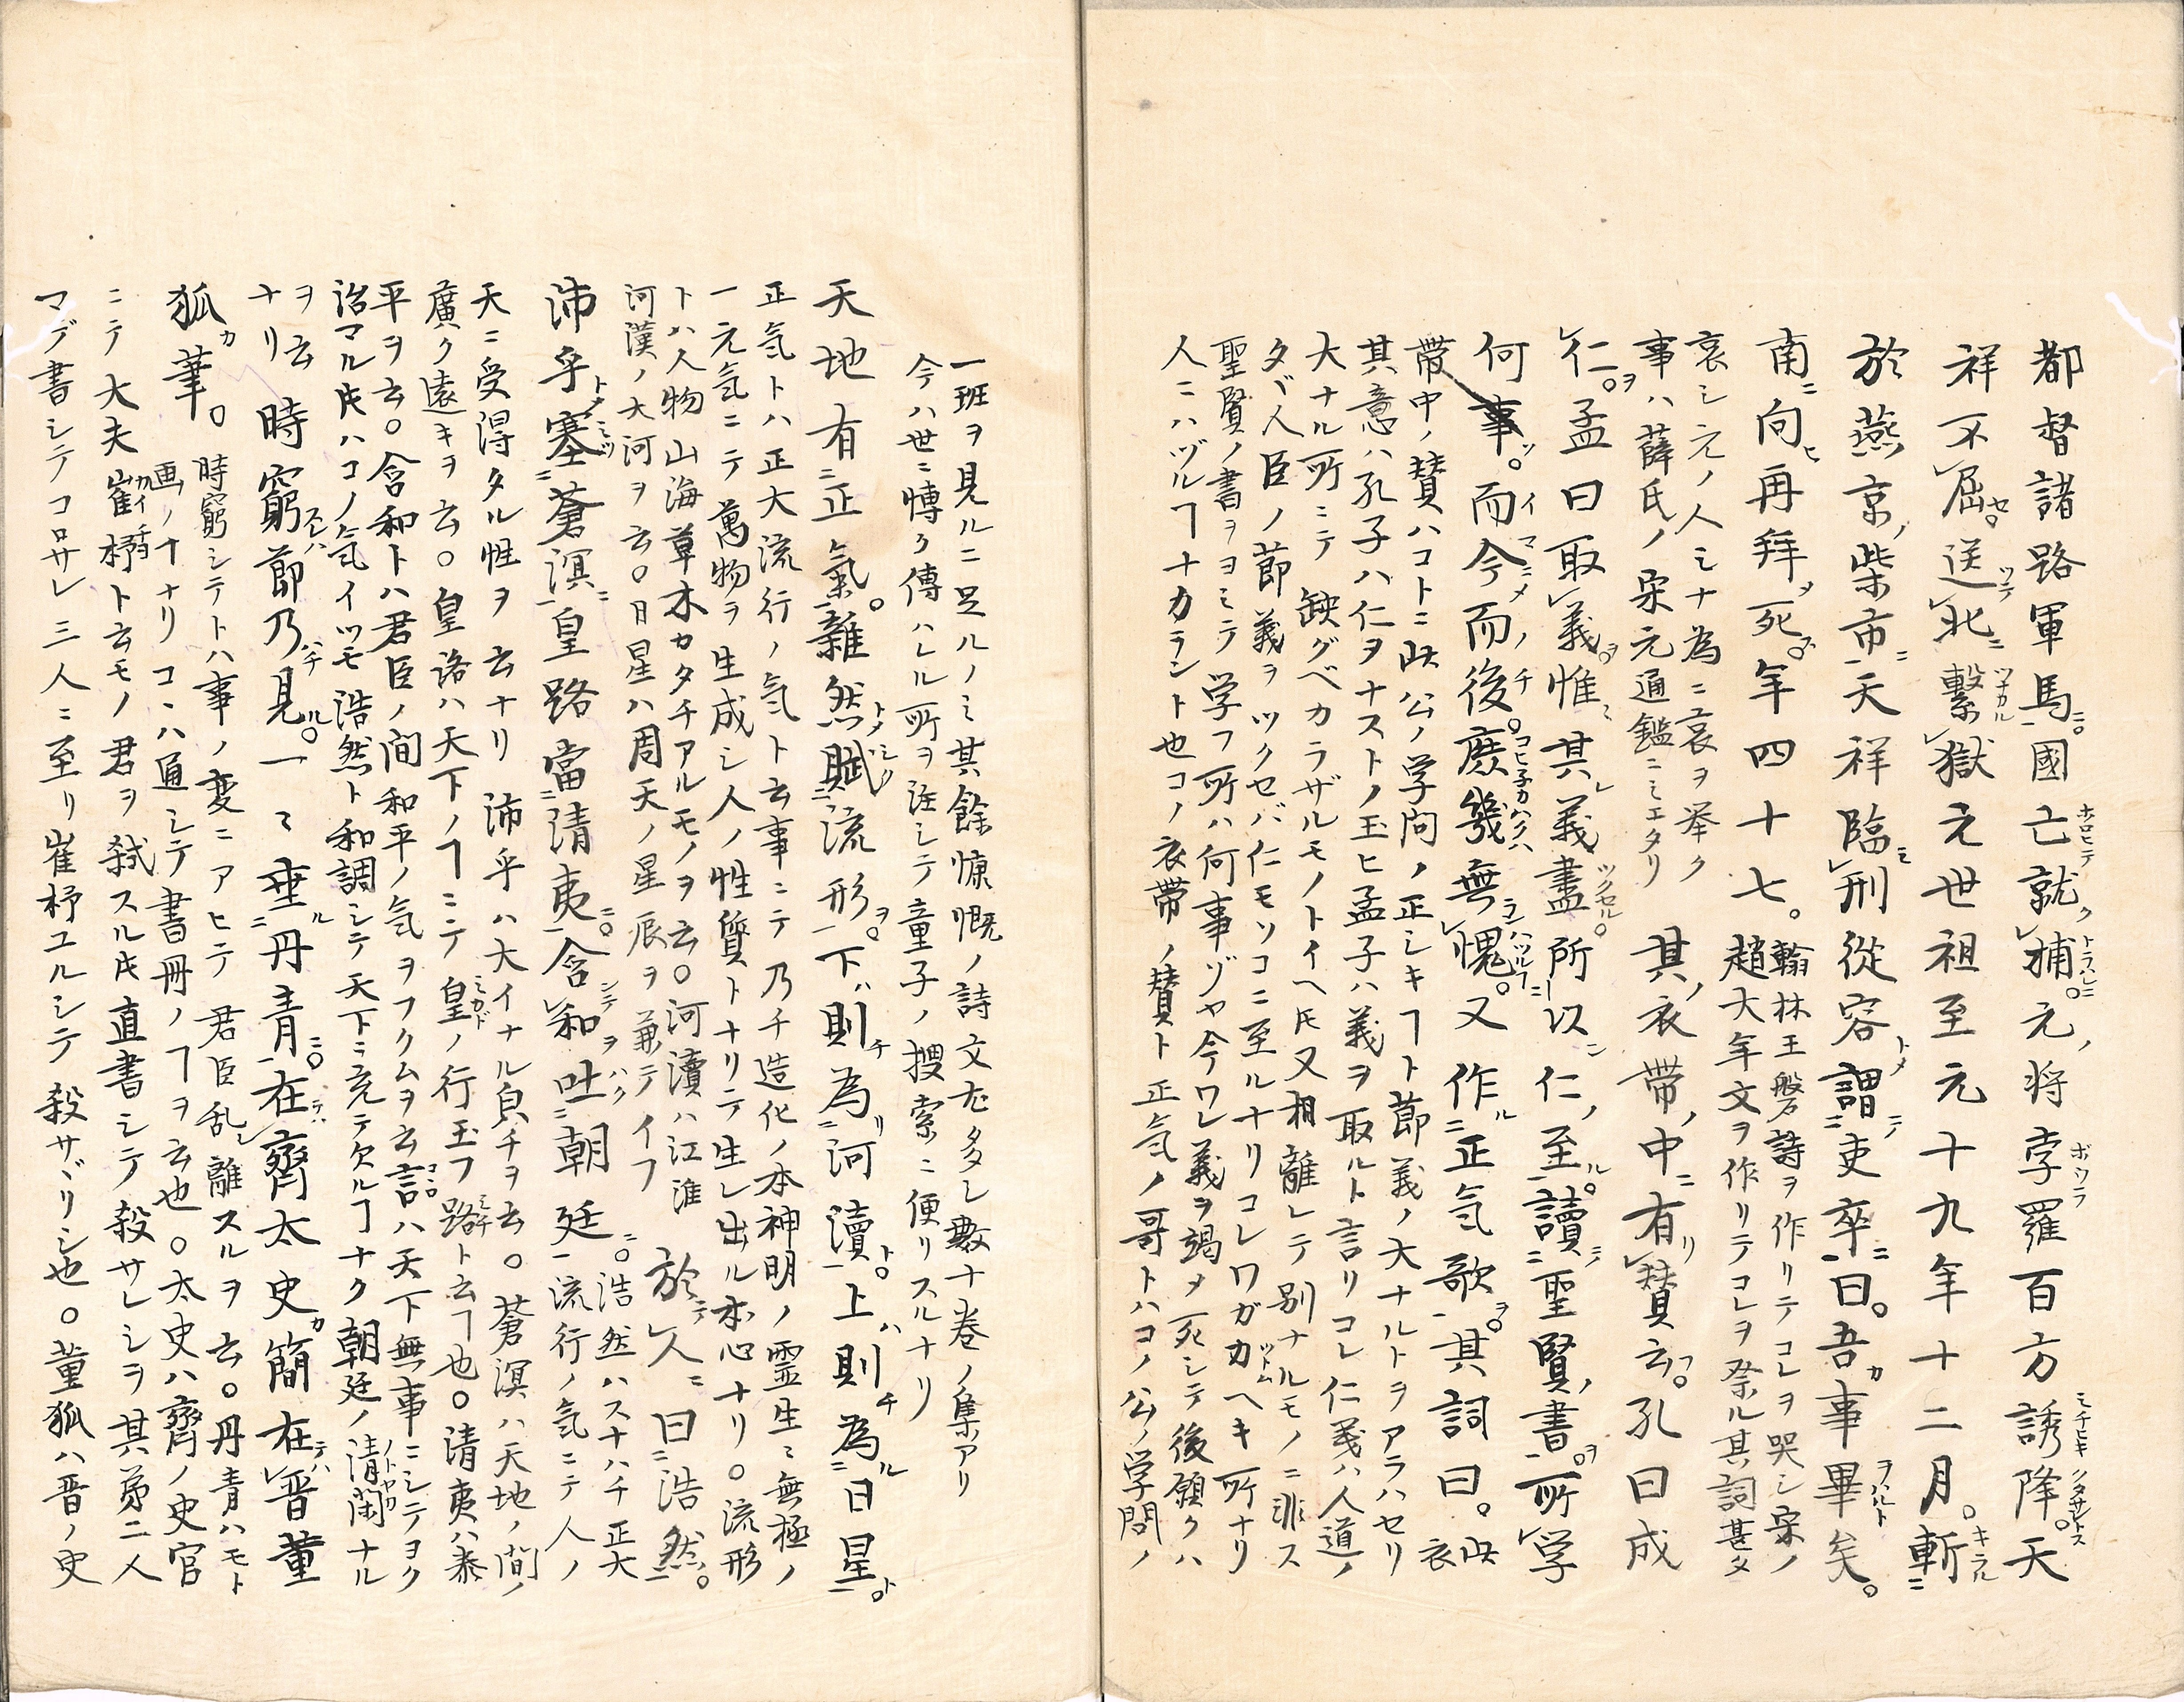 都督諸路軍馬國亡就捕元将孛羅百方誘降天
祥不屈送北繫獄元世祖至元十九年十二月斬
於燕京柴市天祥臨刑從容謂吏卒曰吾事畢矣
南向再拜死年四十七翰林王磐詩ヲ作リテコレヲ哭シ宋ノ
趙大年文ヲ作リテコレヲ祭ル其詞甚タ
哀シ元ノ人ミナ為ニ哀ヲ挙ク
事ハ薛氏ノ宋元通鑑ニミエタリ
其衣帯中有賛云孔曰成
仁孟曰取義惟其義盡所以仁至讀聖賢書所学
何事而今而後庶幾無愧又作正気歌其詞曰此衣
帯中ノ賛ハコトニ此公ノ学問ノ正シキヿト節義ノ大ナルトヲアラハセリ
其意ハ孔子ハ仁ヲナストノ玉ヒ孟子ハ義ヲ取ルト言リコレ仁義ハ人道ノ
大ナル所ニテ缺グベカラザルモノトイヘ𪜈又相離レテ別ナルモノニ非ス
タヾ人臣ノ節義ヲツクセバ仁モソコニ至ルナリコレワガ力ヘキ所ナリ
聖賢ノ書ヲヨミテ学フ所ハ何事ゾヤ今ワレ義ヲ竭メ死シテ後願クハ
人ニハヅルヿナカラント也コノ衣帯ノ賛ト正気ノ哥トハコノ公ノ学問ノ
一班ヲ見ルニ足ルノミ其餘慷慨ノ詩文尤多シ數十巻ノ集アリ
今ハ世ニ博ク傳ハレル所ヲ註シテ童子ノ捜索ニ便リスルナリ
天地有正氣雜然賦流形下則為河瀆上則為日星
正気トハ正大流行ノ気ト云事ニテ乃チ造化ノ本神明ノ霊生ミ無極ノ
一元気ニテ萬物ヲ生成シ人ノ性質トナリテ生レ出ル本心ナリ。流形
トハ人物山海草木カタチアルモノヲ云。河瀆ハ江淮
河漢ノ大河ヲ云。日星ハ周天ノ星辰ヲ兼テイフ
於人曰浩然
沛乎塞蒼溟皇路當清夷含和吐朝廷浩然ハスナハチ正大
流行ノ気ニテ人ノ
天ニ受得タル性ヲ云ナリ沛乎ハ大イナル皃チヲ云。蒼溟ハ天地ノ間ノ
廣ク遠キヲ云。皇路ハ天下ノヿニテ皇ノ行玉フ路ト云ヿ也。清夷ハ泰
平ヲ云。含和トハ君臣ノ間和平ノ気ヲフクムヲ云言ハ天下無事ニシテヨク
治マル𪜈ハコノ気イツモ浩然ト和調シテ天下ニ充テ欠ルヿナク朝廷ノ清閑ナル
ヲ云
ナリ
時窮節乃見一ミ垂丹青在齊太史簡在晋董
狐筆時窮シテトハ事ノ変ニアヒテ君臣乱離スルヲ云。丹青ハモト
画ノヿナリコヽハ通シテ書冊ノヿヲ云也。太史ハ齊ノ史官
ニテ大夫崔杼ト云モノ君ヲ弑スル𪜈直書シテ殺サレシヲ其弟二人
マデ書シテコロサレ三人ニ至リ崔杼ユルシテ殺サヾリシ也。董狐ハ晋ノ史